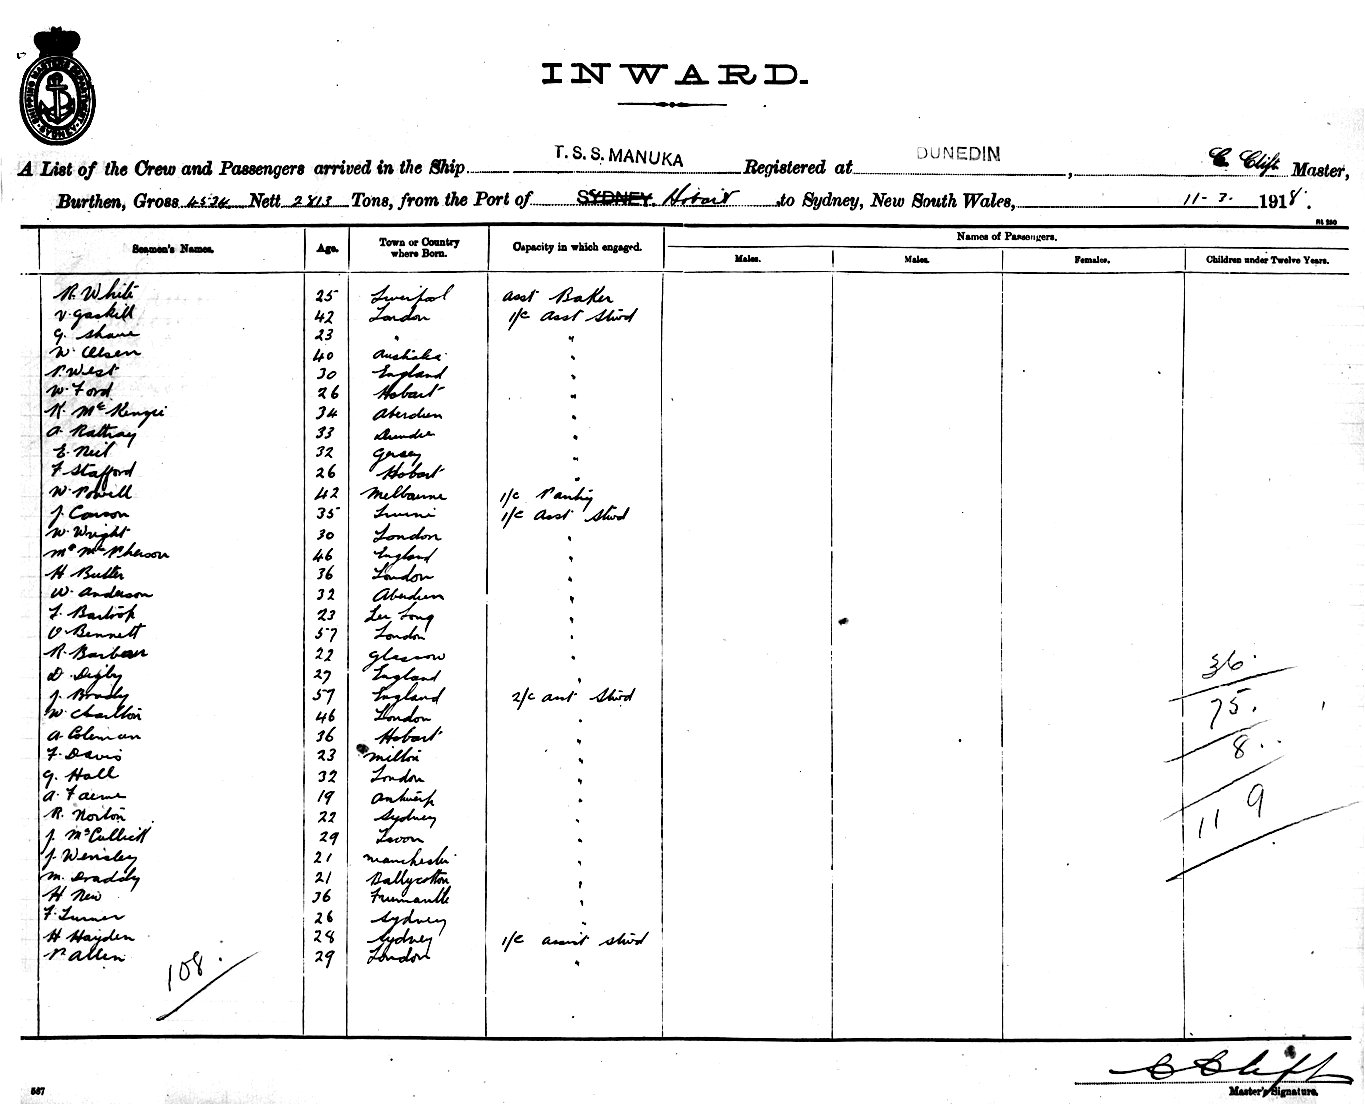 INWARD.
A List of the Crew and Passengers arrived in the Ship T. S. S. MANUKA Registered at DUNEDIN, C. Clift Master,
Burthen, Gross 4534 Nett 2813 Tons, from the Port of SYDNEY. Hobart to Sydney, New South Wales, 11-7. 1918.
Seamen's Names. Age. Town or Country where Born. Capacity in which engaged. Names of Passengers.
Males. Males. Females. Children under Twelve Years.
R. White 25 Liverpool asst Baker
V. Gaskill 42 London 1/c asst Stwd
G. Shane 23 " "
W. Olsen 40 Australia "
P. West 30 England "
W. Ford 26 Hobart "
K. McKenzie 34 Aberdeen "
A. Rattray 33 Dundee "
E. Neil 32 Jersey "
F Stafford 26 Hobart "
W. Powell 42 Melbourne 1/c Pantry
J. 35 1/c asst Stwd
W. Wright 30 London "
McPherson 46 England "
H Butler 36 London "
W. Anderson 32 Aberdeen "
23 "
O Bennett 57 London "
R. Barbour 22 Glasgow "
D. Digby 27 England "
36.
J. Brady 57 England 2/c asst Stwd
W Charlton 46 London "
75.
A. Coleman 36 Hobart "
F. Davis 23 Milton "
8.
G. Hall 32 London "
A. 19 Antwerp "
119
R. Norton 22 Sydney "
J. 29 "
J. Wensley 21 Manchester "
M. 21 Ballycotton "
H New 36 Fremantle "
F. Turner 26 Sydney "
H Hayden 28 Sydney 1/c assist Stwd
P Allen 29 London "
108.
C Clift
Master's Signature.
567